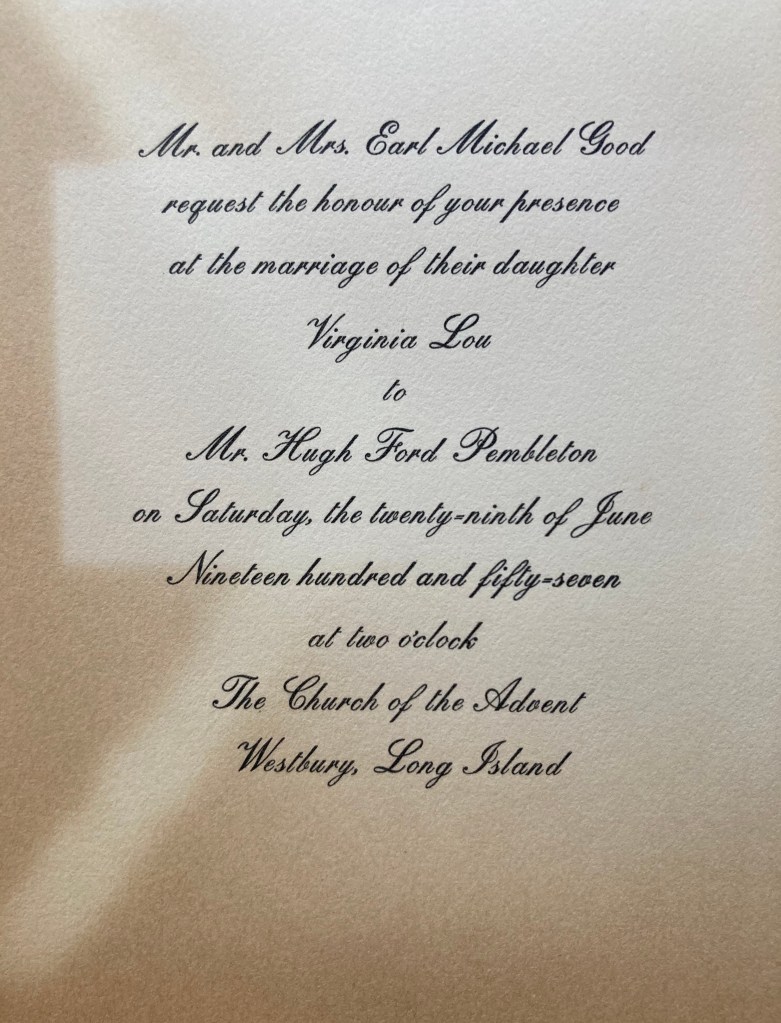 Mr. and Mrs. Earl Michael Good
request the honour of your presence
at the marriage of their daughter
Virginia Lou
to
Mr. Hugh Ford Pembleton
on Saturday, the twenty-ninth of June
Nineteen hundred and fifty-seven
at two o'clock
The Church of the Advent
Westbury, Long Island